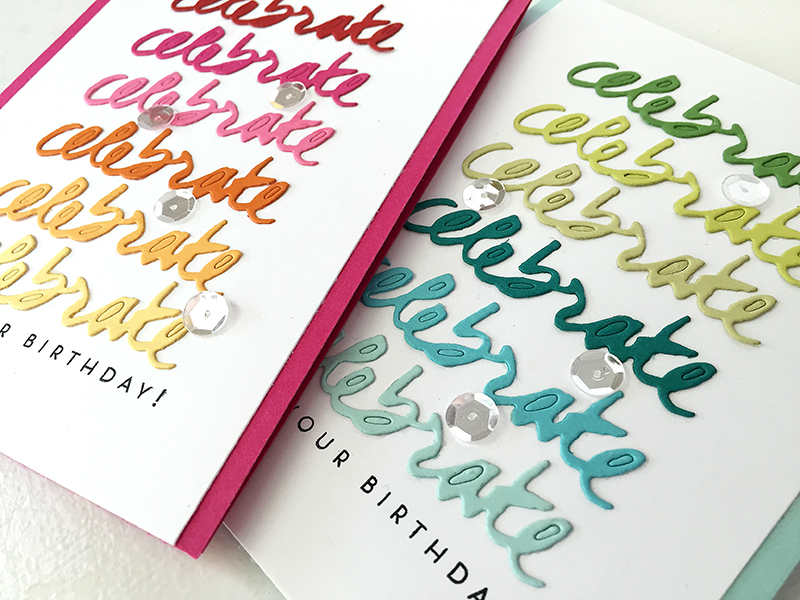 celebrate
celebrate
celebrate
celebrate
celebrate
celebrate
BIRTHDAY!
celebrate
celebrate
celebrate
celebrate
celebrate
celebrate
YOUR BIRTHDA